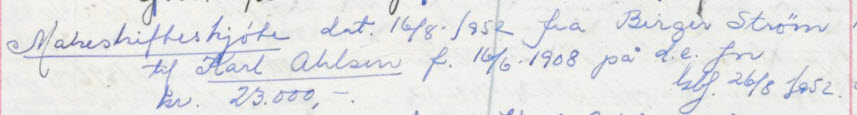 Makeskifteskjöte dat. 16/8. 1952 fra Birger Ström
til Karl Ahlsen f. 16/6. 1908 på d.e. for
kr. 23.000,-. tgl. 26/8 1952.